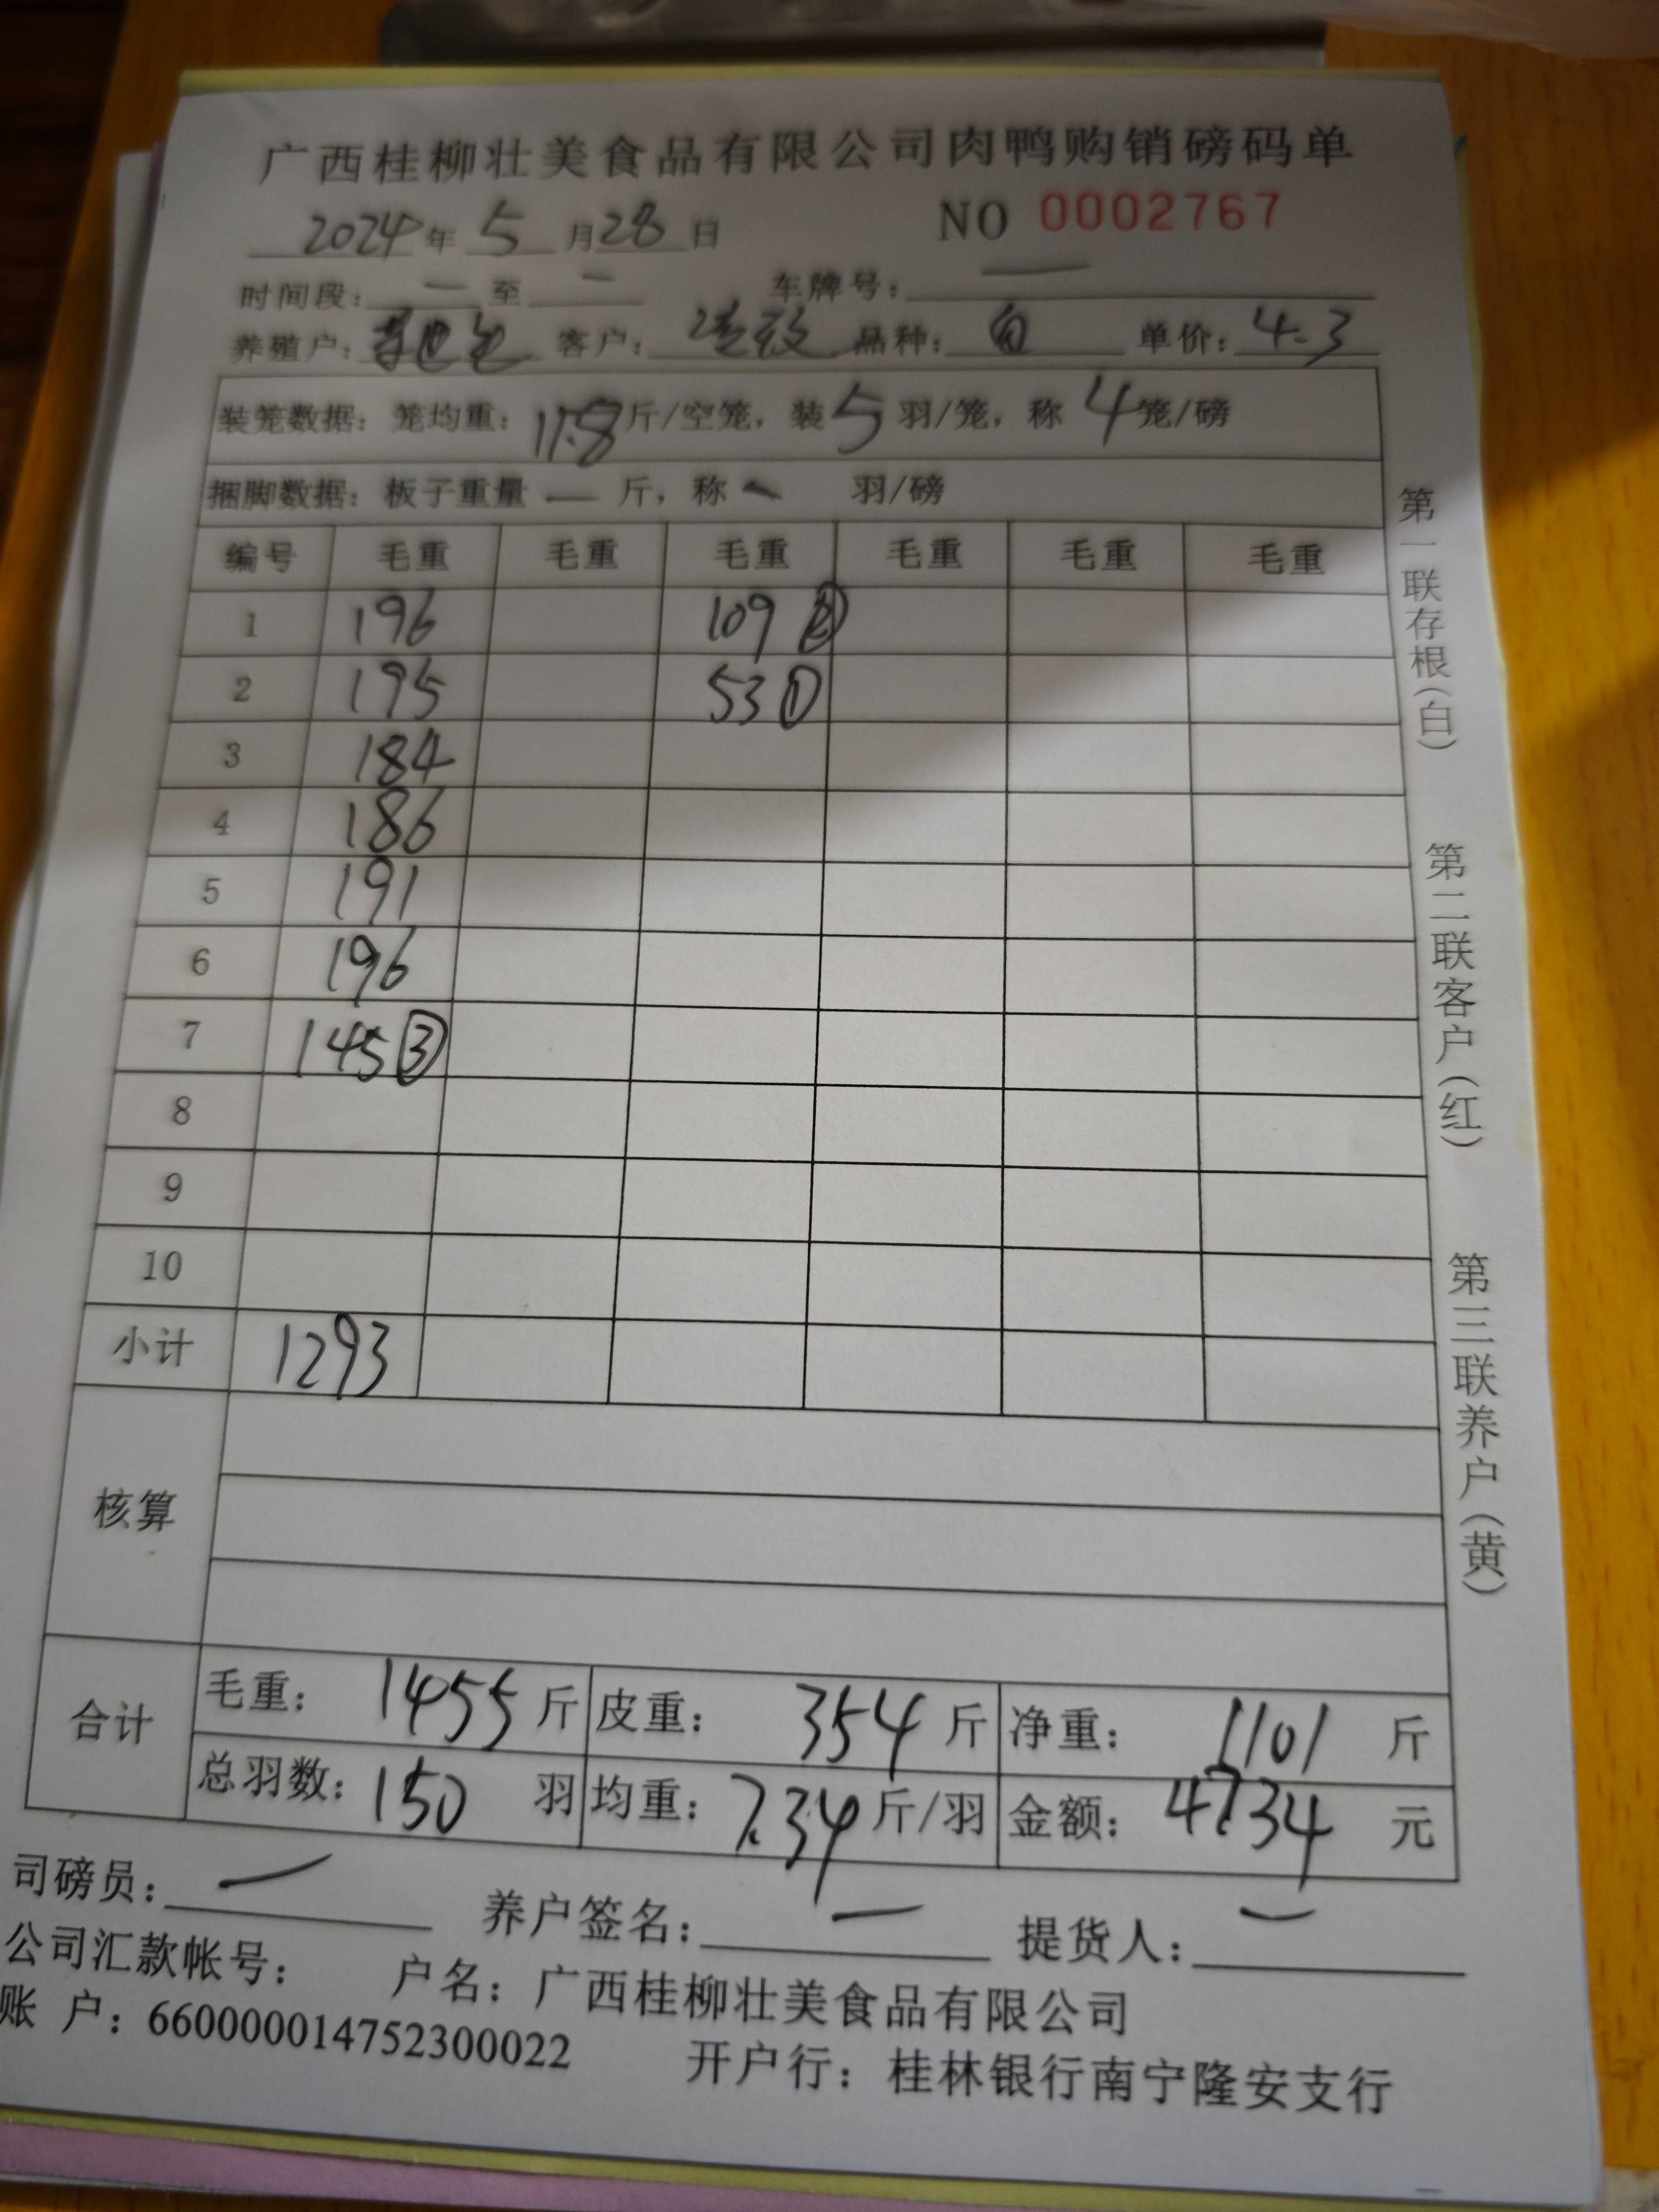 广西桂柳壮美食品有限公司肉鸭购销磅码单
2024年 5 月 28 日 NO 0002767
时间段: — 至 — 车牌号: —
养殖户: 客户: 品种: 白 单价: 4.3
装笼数据: 笼均重: 11.8 斤/空笼, 装 5 羽/笼, 称 4 笼/磅
捆脚数据: 板子重量 — 斤, 称 — 羽/磅
编号 毛重 毛重 毛重 毛重 毛重 毛重
1 196 109 ②
2 195 53 ①
3 184
4 186
5 191
6 196
7 145 ③
8
9
10
小计 1293
核算
合计 毛重: 1455 斤 皮重: 354 斤 净重: 1101 斤
总羽数: 150 羽 均重: 7.34 斤/羽 金额: 4734 元
司磅员: — 养户签名: — 提货人: —
公司汇款帐号: 户名: 广西桂柳壮美食品有限公司
账 户: 660000014752300022 开户行: 桂林银行南宁隆安支行
第一联存根(白) 第二联客户(红) 第三联养户(黄)